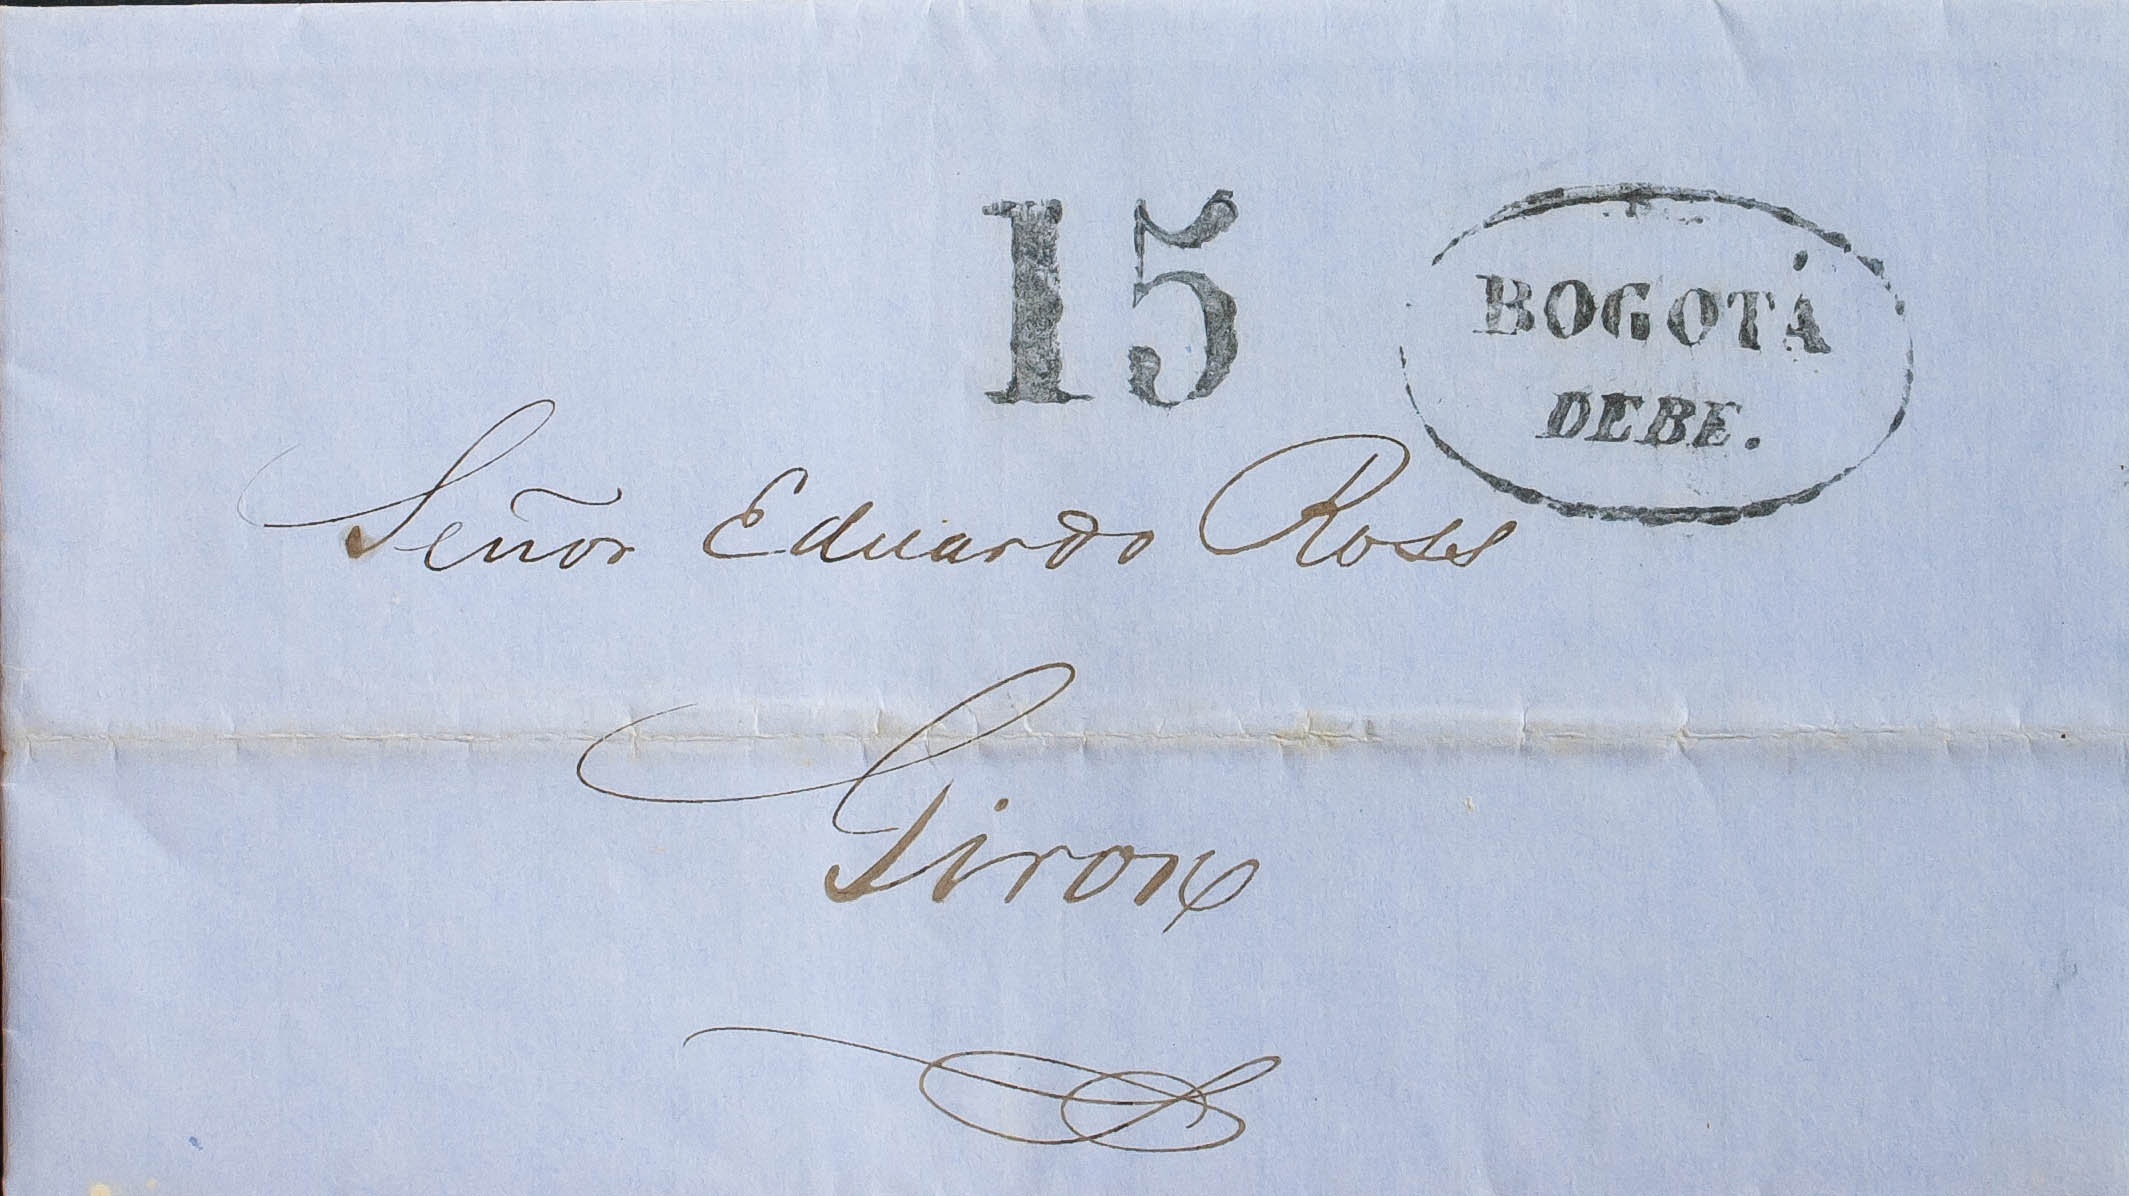 15
BOGOTÁ
DEBE.
Señor Eduardo Ross
Giron